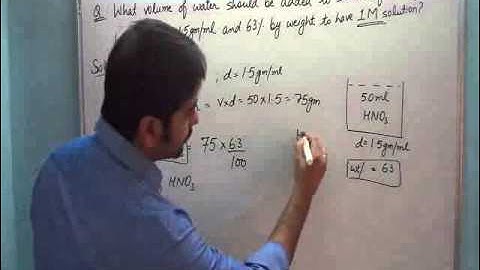 Q What volume of water should be added to
1.5gm/ml and 63% by weight to have 1M solution?
Sol
, d = 1.5gm/ml
= V×d = 50×1.5 = 75gm
= 75 × 63
100
HNO3
50ml
HNO3
d = 1.5gm/ml
wt/ = 63